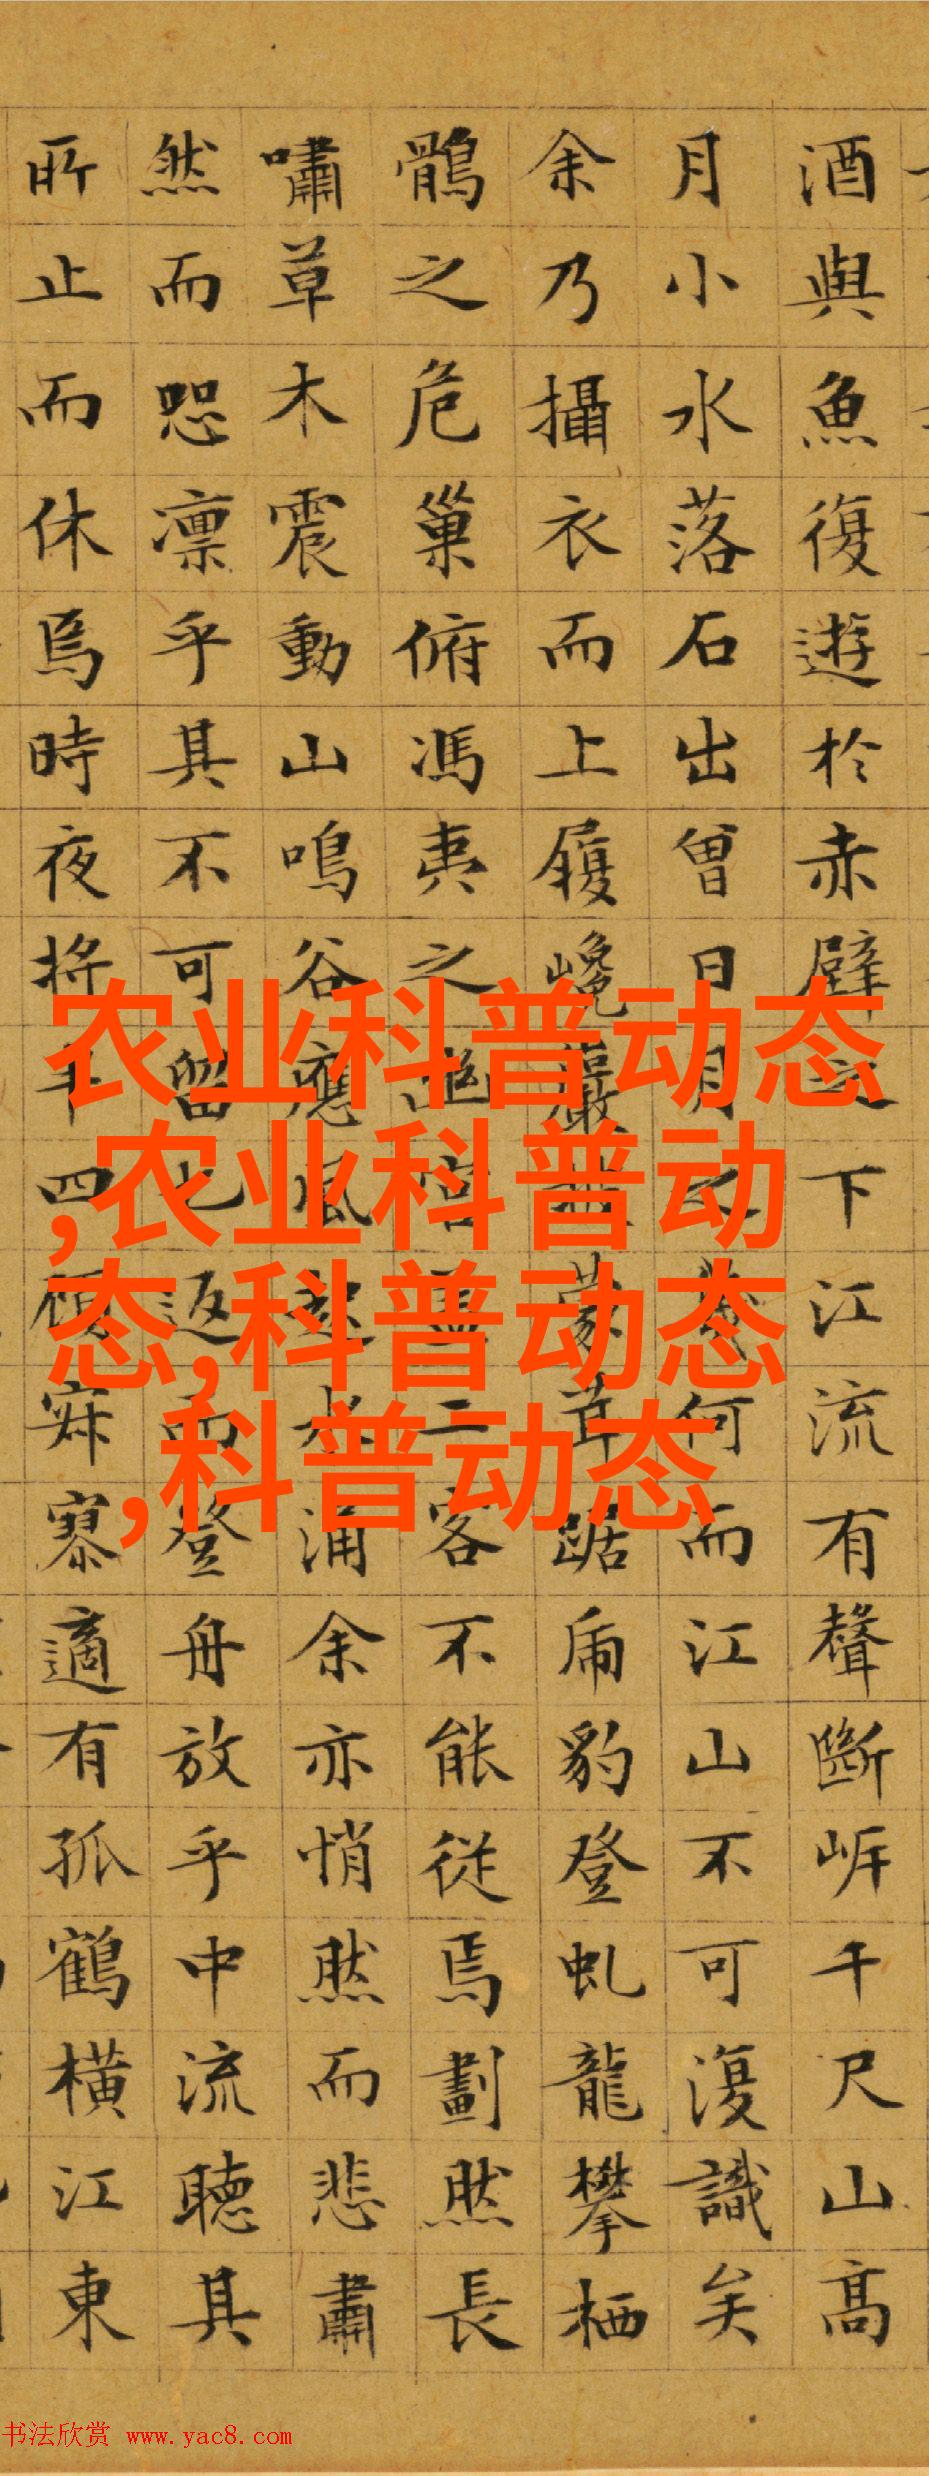 酒與魚復遊於赤壁之下江流有聲斷岸千尺山高
月小水落石出曾日月之幾何而江山不可復識矣
余乃攝衣而上履巉巖披蒙茸踞虎豹登虬龍攀栖
鶻之危巢俯馮夷之幽宮蓋二客不能從焉劃然長
嘯草木震動山鳴谷應風起水涌余亦悄然而悲肅
然而恐凛乎其不可留也返而登舟放乎中流聽其
所止而休焉時夜將半四顧寂寥適有孤鶴橫江東
农业科普动态
,农业科普动
态,科普动态
,科普动态
书法欣赏 www.yac8.com